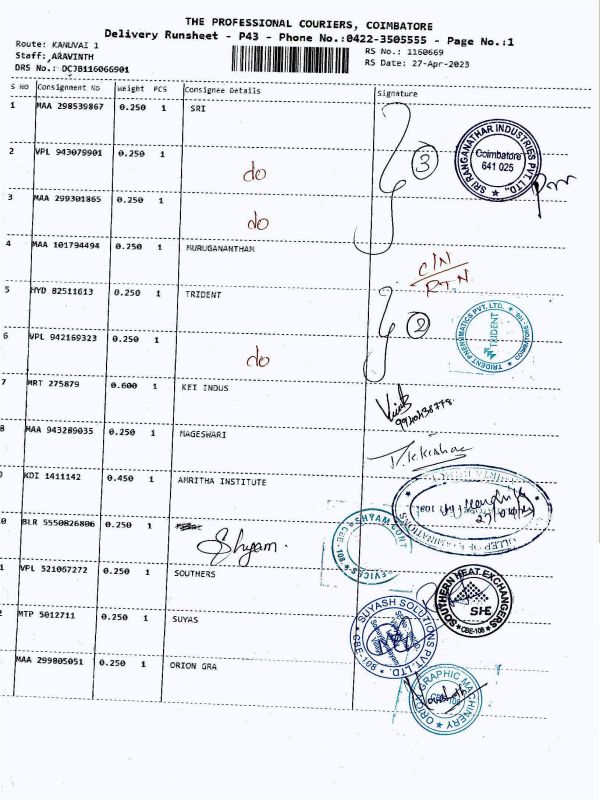 THE PROFESSIONAL COURIERS, COIMBATORE
Delivery Runsheet - P43 - Phone No.:0422-3505555 - Page No.:1
Route: KANUVAI 1
Staff: ARAVINTH
DRS No.: DCJB116066901
RS No.: 1160669
RS Date: 27-Apr-2023
S NO Consignment No Weight PCS Consignee Details Signature
1 MAA 298539867 0.250 1 SRI
3
SRI RANGANATHAR INDUSTRIES PVT. LTD.,
Coimbatore
641 025
2 VPL 943079901 0.250 1 do
3 MAA 299301865 0.250 1 do
4 MAA 101794494 0.250 1 MURUGANANTHAM C/N
RTN
5 HYD 82511613 0.250 1 TRIDENT
2
TRIDENT PNEUMATICS PVT. LTD.
TRIDENT
6 VPL 942169323 0.250 1 do
7 MRT 275879 0.600 1 KEI INDUS
8 MAA 943289035 0.250 1 MAGESWARI
KDI 1411142 0.450 1 AMRITHA INSTITUTE
0 BLR 5550826806 0.250 1 Shyam.
SHYAM
CBE-108
1 VPL 521067272 0.250 1 SOUTHERS
SOUTHERN HEAT EXCHANGERS
SHE
CBE-108
2 MTP 5012711 0.250 1 SUYAS
SUYASH SOLUTIONS PVT. LTD.
CBE-108
MAA 299805051 0.250 1 ORION GRA
GRAPHIC MACHINERY